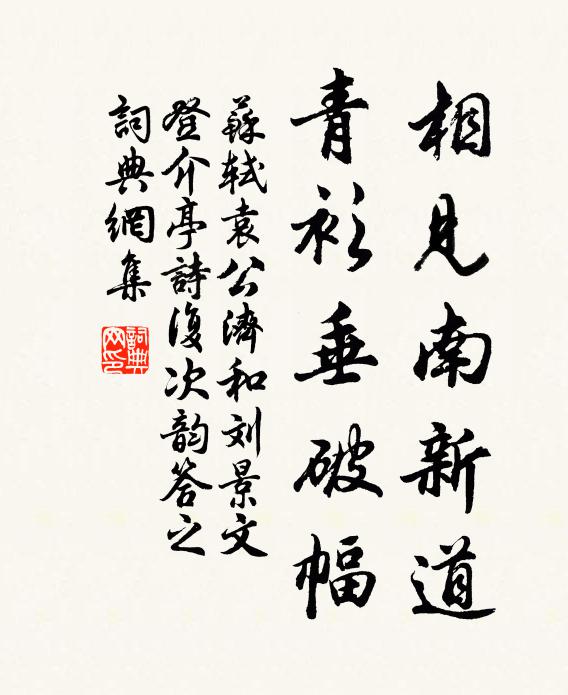 相見南新道
青衫垂破幅
蘇軾袁公濟和刘景文
登介亭詩復次韵答之
詞典網集
詞典网印